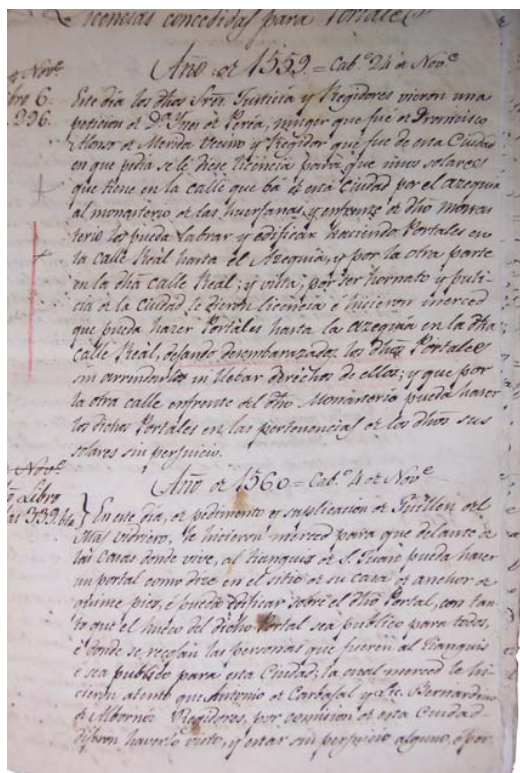 Licencias concedidas para Portales
Año de 1559 = Cab.º 24 de Nov.e
Nov.e
Libro 6.
296.
Este dia los dhos Sres. Justicia y Regidores vieron una
peticion de D.ª Ynes de Perea, muger que fué de Francisco
Alonso de Merida Vecino y Regidor que fue de esta Ciudad
en que pidia se le diese licencia para que unos solares
que tiene en la calle que bá de esta Ciudad por el azequia
al monasterio de las huerfanas, y enfrente de dho monas
terio los pueda labrar y edificar haciendo Portales en
la calle Real hasta el Azequia, y por la otra parte
en la dha calle Real; y vista; por ser hornato y puli-
cia de la Ciudad le dieron licencia é hicieron merced
que pueda hazer Portales hasta la azequia en la dha
calle Real, dejando desembarazados los dhos Portales
sin arrendarlos ni llebar derechos de ellos; y que por
la otra calle enfrente del dho Monasterio pueda hacer
los dichos Portales en las pertenencias de los dhos sus
solares sin perjuicio.
Año de 1560 = Cab.º 4 de Nov.e
Nov.e
Libro
339. bta.
En este dia, de pedimento y suplicacion de Guillen del
Mas vidriero, le hicieron merced para que delante de
las Casas donde vive, al tianguis de S. Juan pueda hacer
un portal como dize en el sitio de su casa de anchor de
quinze pies, é pueda edificar sobre el dho Portal, con tan-
to que el hueco del dicho Portal sea publico para todos,
é donde se recojan las personas que fueren al Tianguis
é sea publico para esta Ciudad; la cual merced le hi-
cieron atento que Antonio de Carbajal y Bernardino
de Albornoz Regidores, por comision de esta Ciudad
dijeron haverlo visto, y estar sin perjuicio alguno, é por